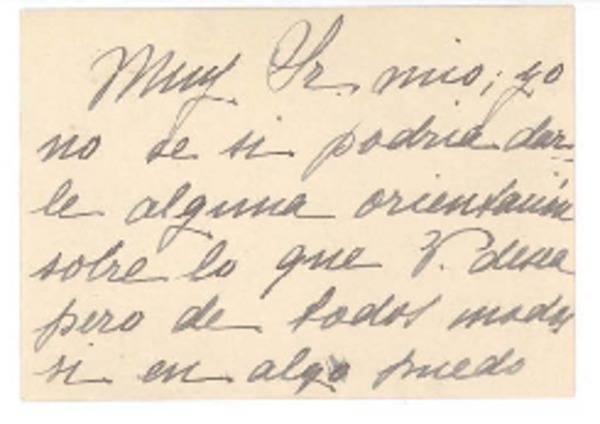 Muy Sr. mio; yo
no se si podria dar-
le alguna orientación
sobre lo que V. desea
pero de todos modos
si en algo puedo